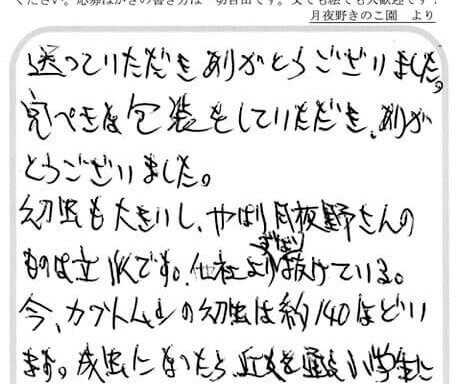 ください。応募はがきの書き方は一切自由です。文でも絵でも大歓迎です！
月夜野きのこ園 より
送っていただきありがとうございました。
完ぺきな包装をしていただき、ありが
とうございました。
幼虫も大きいし、やはり月夜野さんの
ものは立派です。他社よりずばり抜けている。
今、カブトムシの幼虫は約140ほどい
ます。成虫になったら、近くを通る小学生に